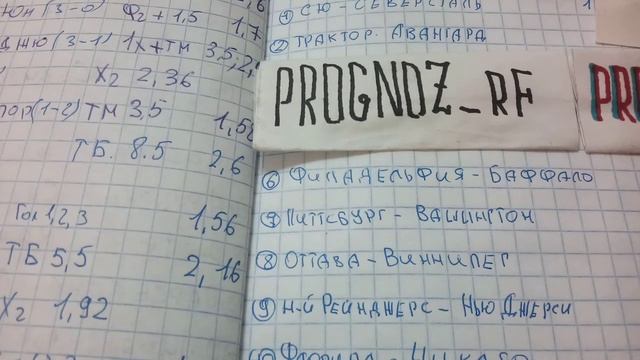 Ф2 + 1,5 1,7
(3-1) 1X + ТМ 3.5; 2,
X2 2,36
(1-2) ТМ 3,5 1,5
ТБ. 8.5 2,6
Гол 1,2,3 1,56
ТБ 5,5 2,16
X2 1,92
1 СЮ - СЕВЕРСТАЛЬ
2 ТРАКТОР. АВАНГАРД
PROGNOZ_RF
PR
6 ФИЛАДЕЛЬФИЯ - БАФФАЛО
7 ПИТТСБУРГ - ВАШИНГТОН
8 ОТТАВА - ВИННИПЕГ
9 Н-Й РЕЙНДЖЕРС - НЬЮ ДЖЕРСИ